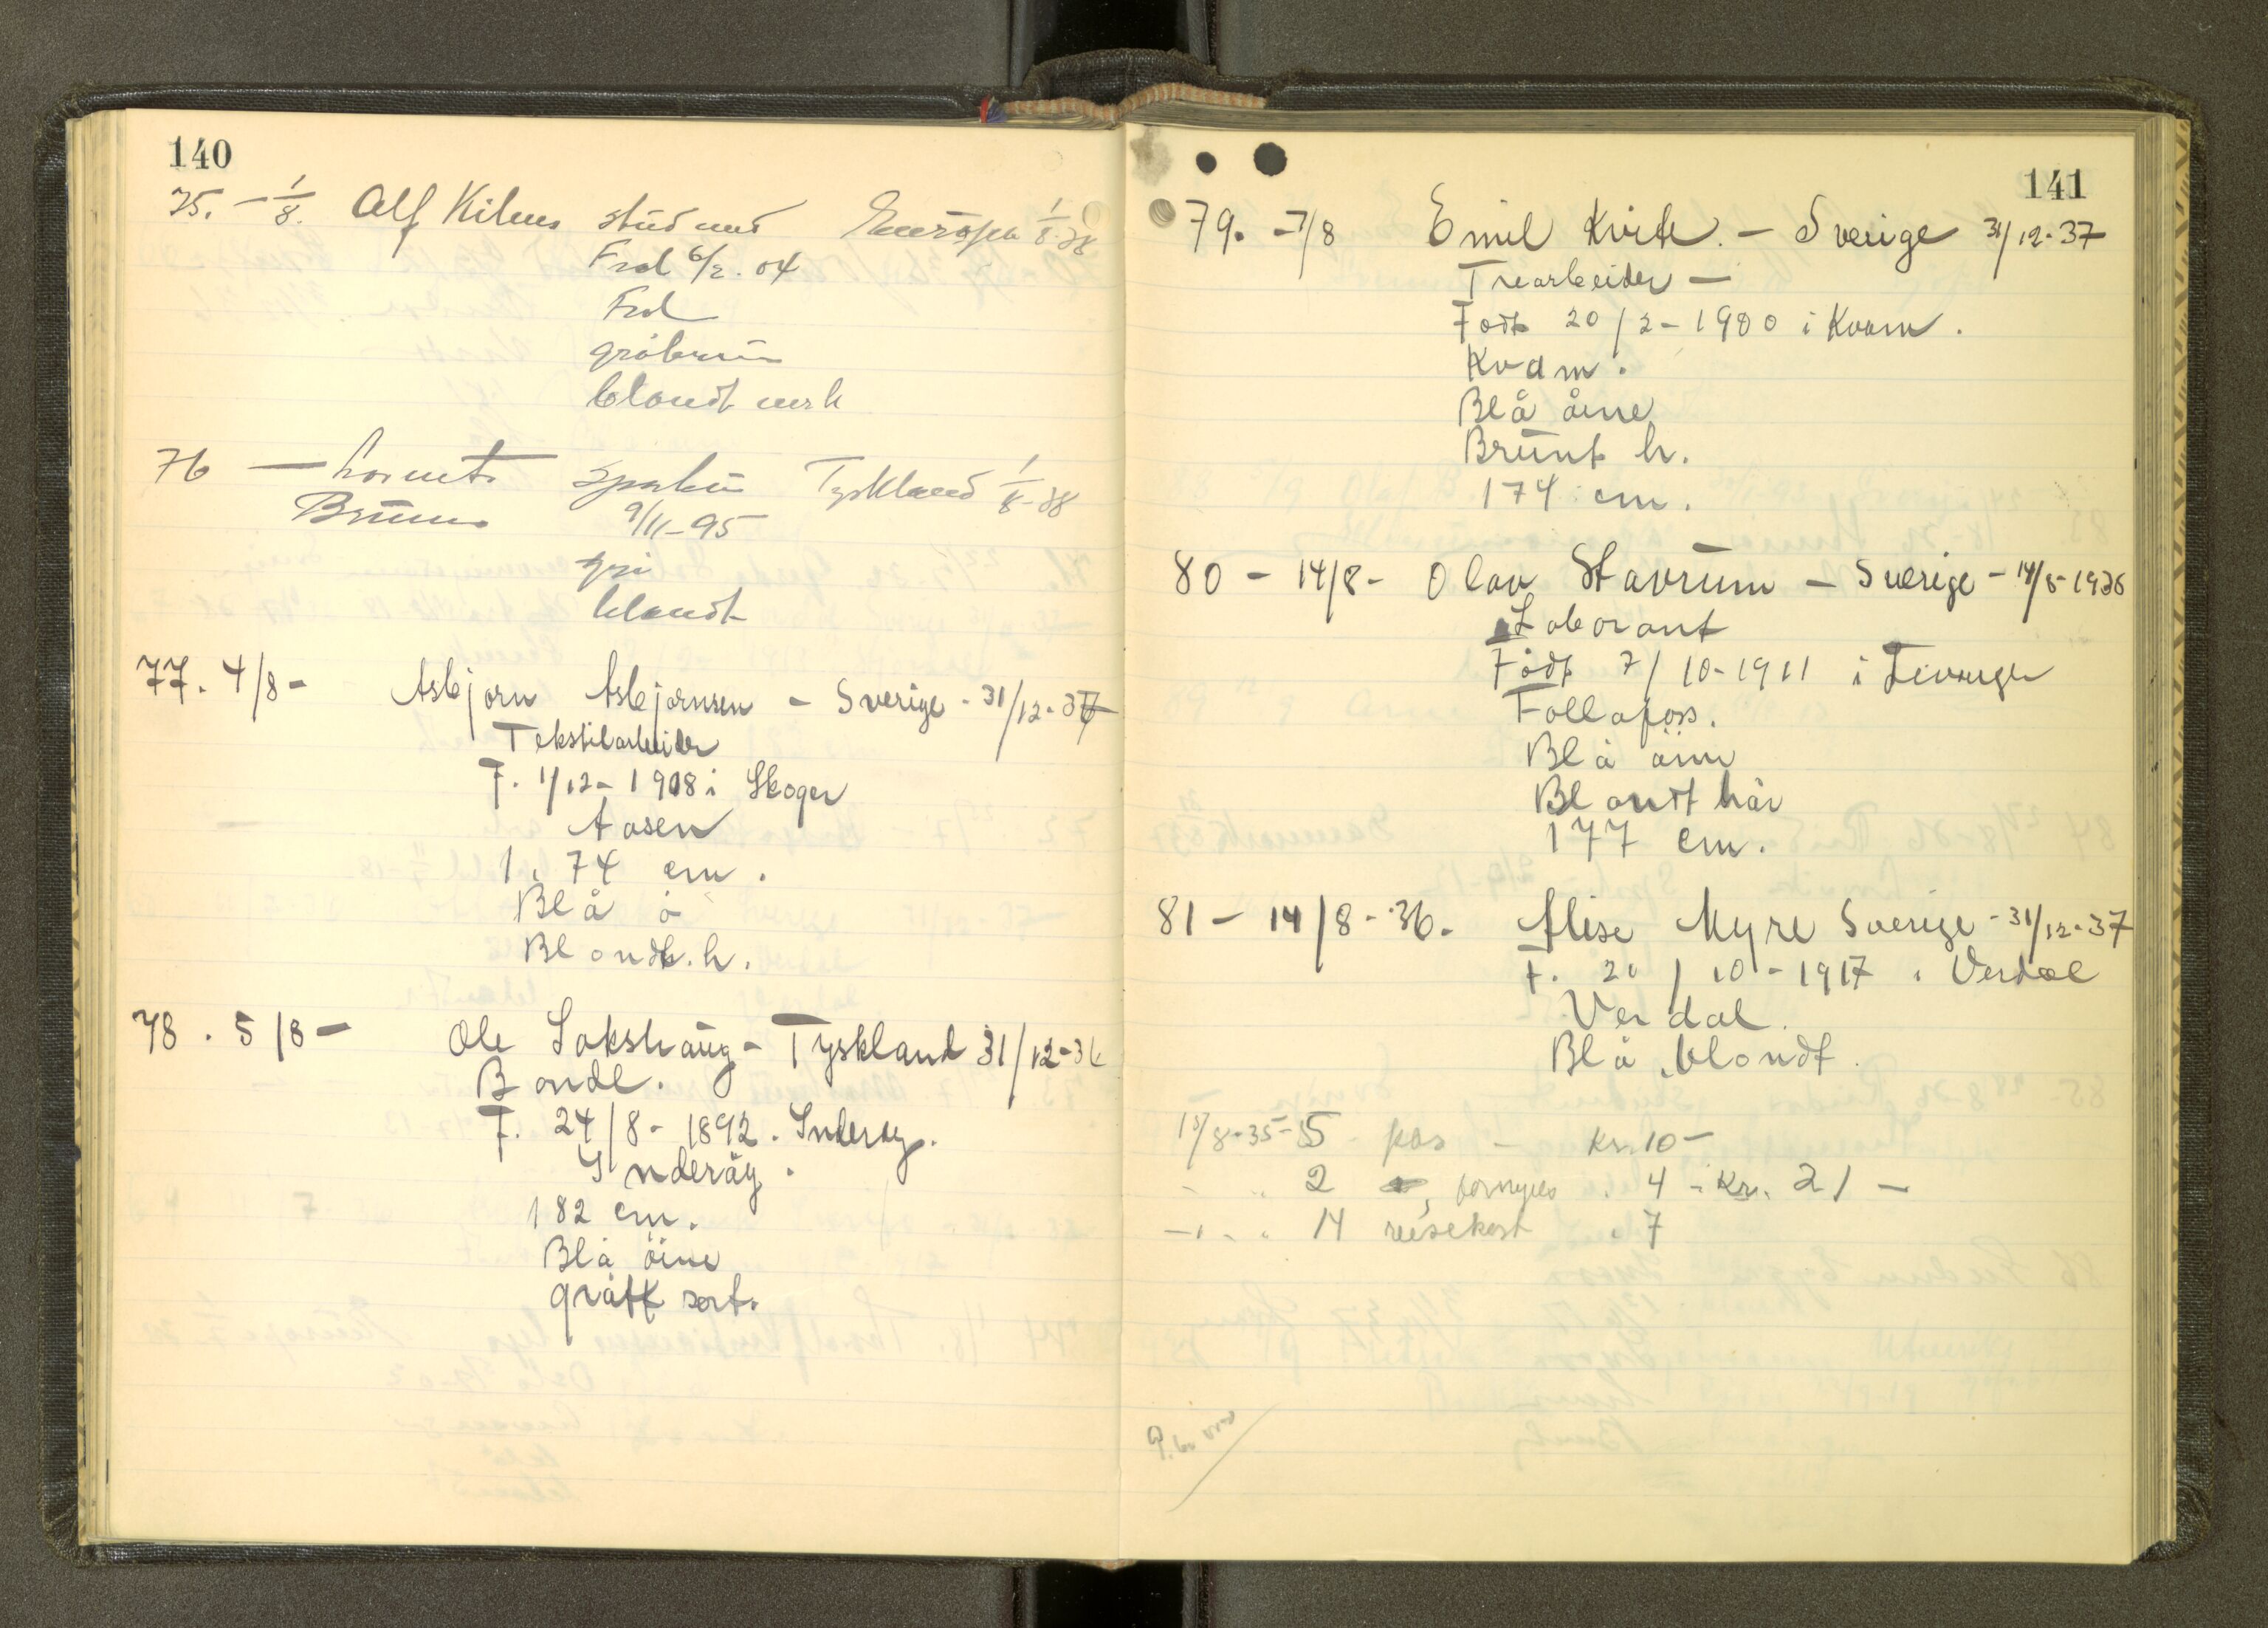 140
75. - 1/8. Alf Kilnes stud med Europa 1/8-38
Frol 6/2. 04
Frol
gråbrun
blondt mrk
76 Tyskland 1/8-38
Bruun 9/11-95
grå
blondt
77. 4/8 - Asbjørn Asbjørnsen - Sverige - 31/12-37
Tekstilarbeider
F. 1/12 - 1908 i Skoger
Aasen
1. 74 cm.
Blå ø
Blondt. h.
78. 5/8 - Ole Sakshaug - Tyskland 31/12-36
Bonde.
F. 24/8 - 1892. Inderøy.
Inderøy.
182 cm.
Blå øine
grått sort.
141
79. - 7/8 Emil Kvite. - Sverige 31/12-37
Trearbeider -
Født 20/2 - 1900 i Kvam.
Kvam.
Blå øine
Brunt h.
174 cm.
80 - 14/8 - Olav Stavrum - Sverige - 14/8-1936
Laborant
Født 7/10-1911 i Levanger
Follafoss.
Blå øine
Blondt hår
177 cm.
81 - 14/8 - 36. Alise Myre Sverige - 31/12-37
F. 20/10 - 1917 i Verdal
Verdal.
Blå, blondt.
15/8-35 - 5 pas - kr. 10 -
- " 2 fornyes . 4 - Kr. 21 -
- " 14 reisekort . 7